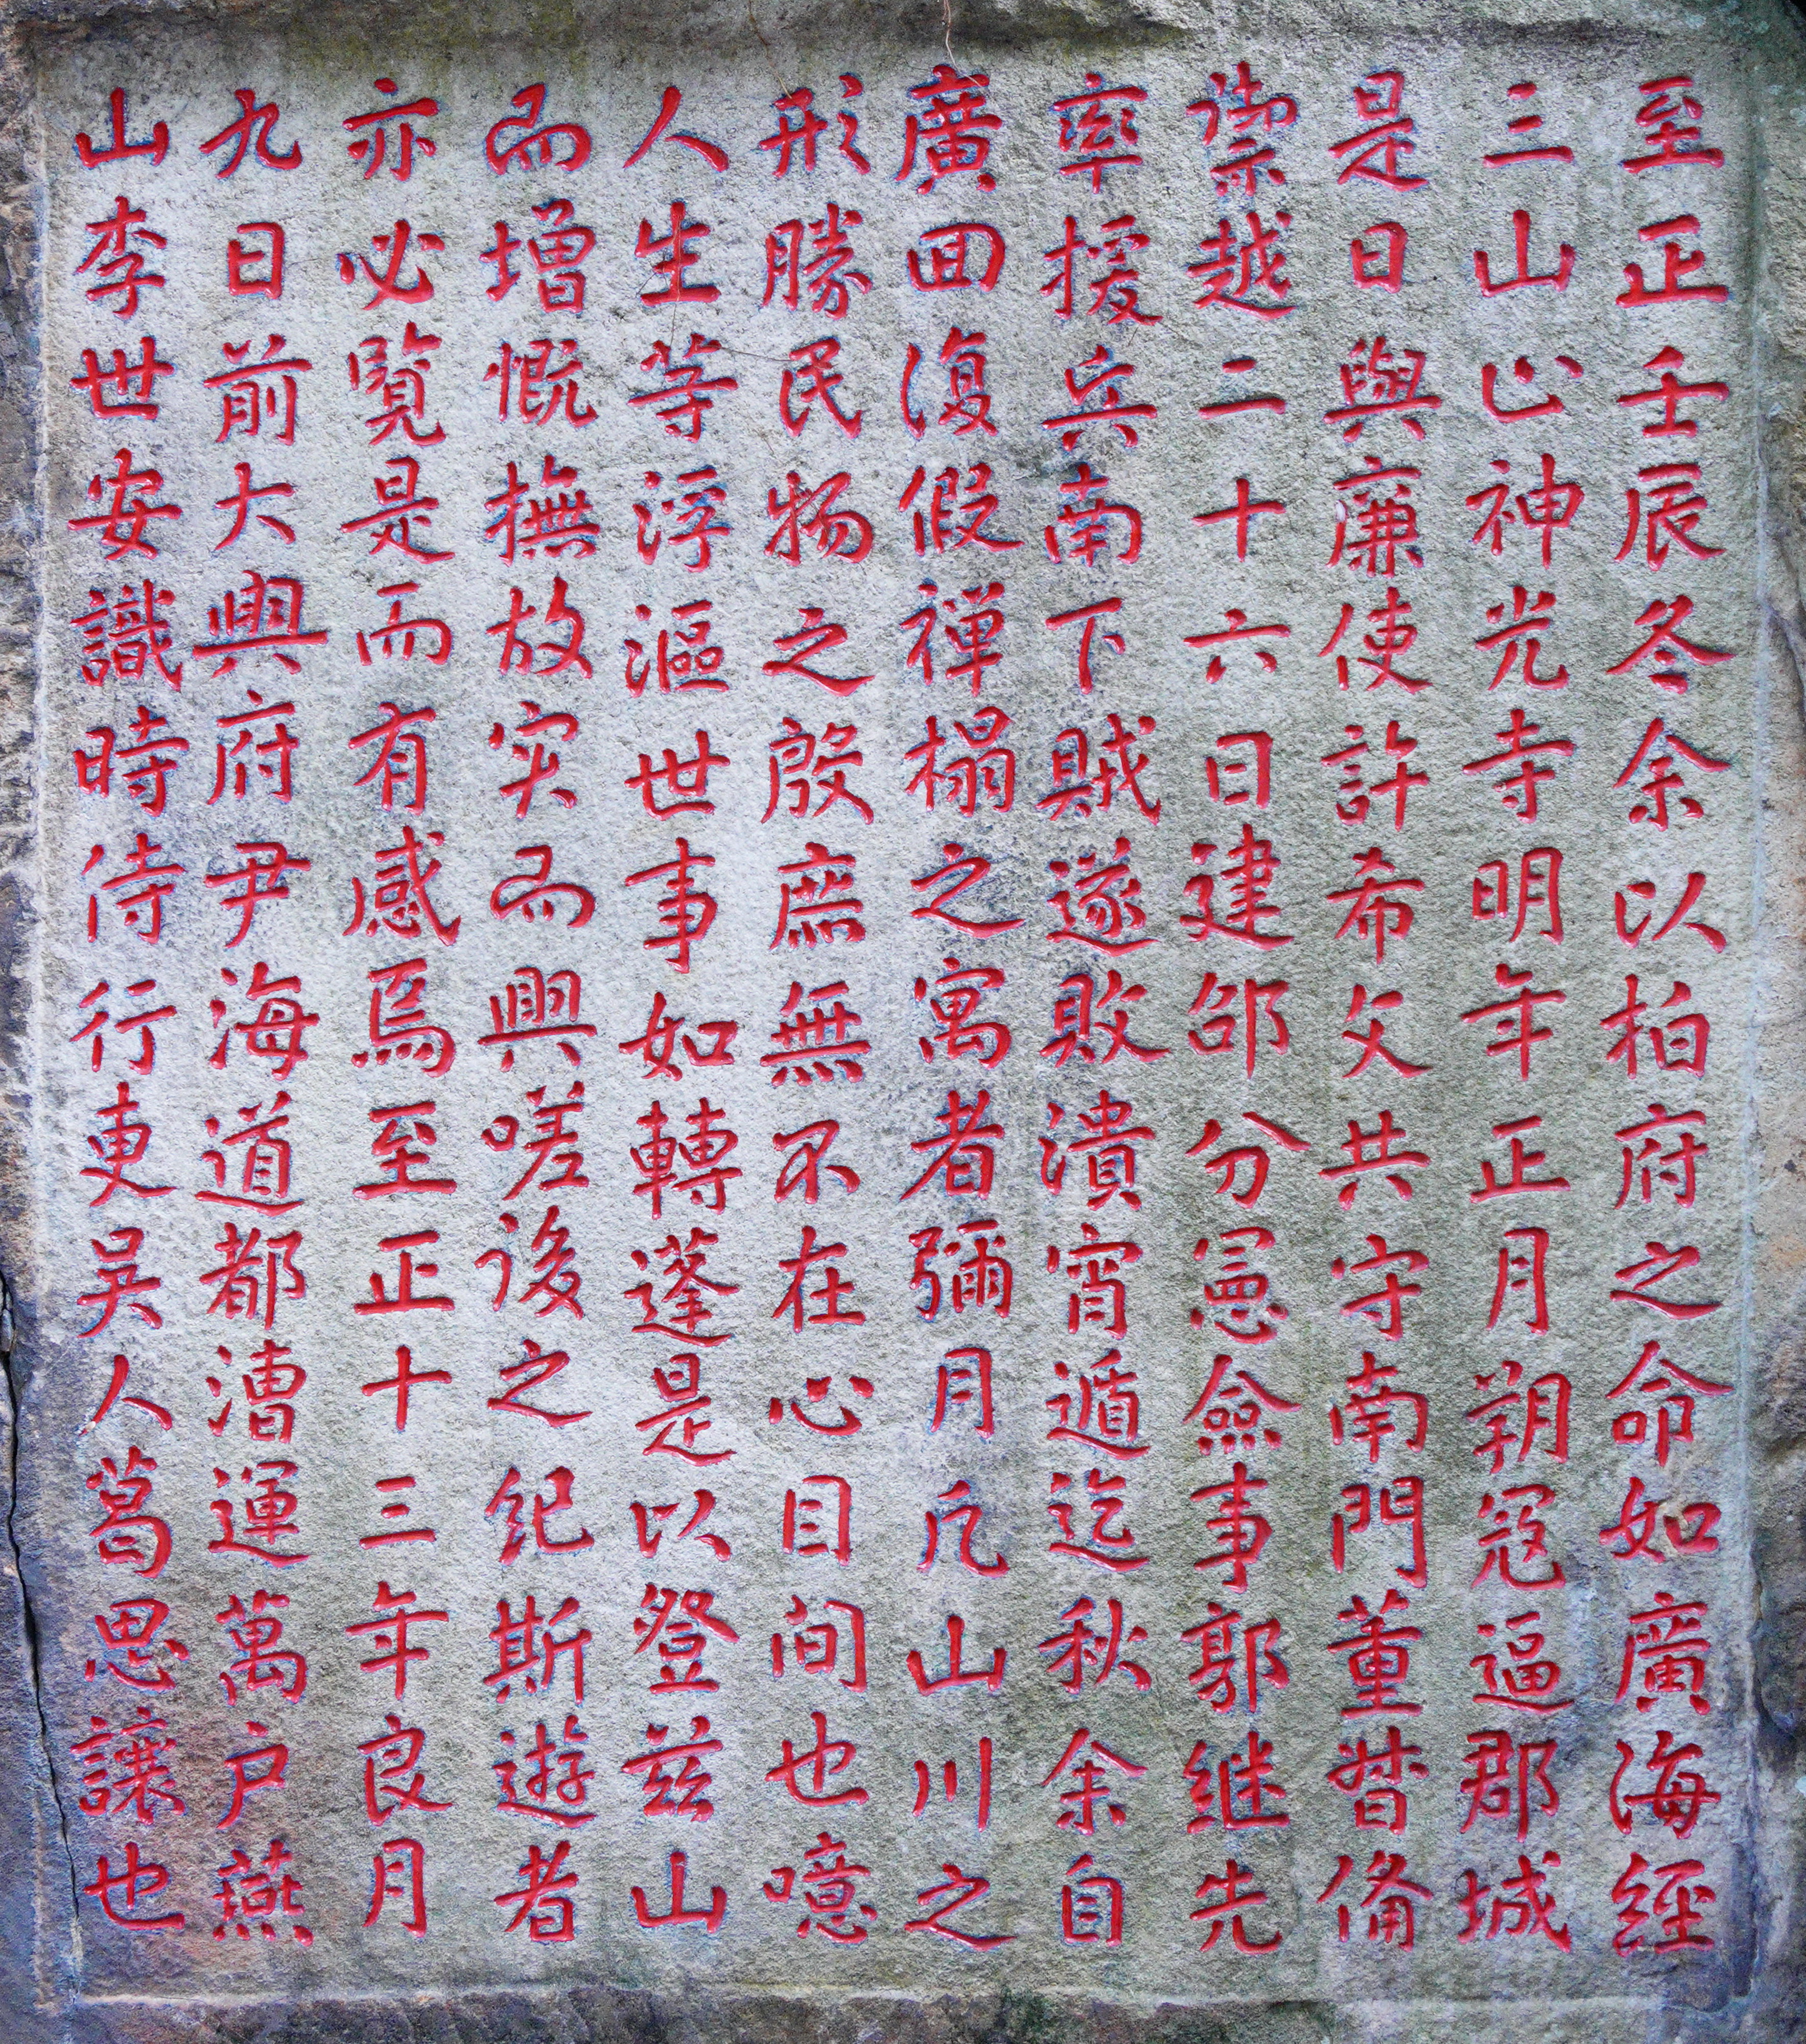 至正壬辰冬余以柏府之命如廣海經
三山止神光寺明年正月朔冦逼郡城
是日與廉使許希文共守南門董督備
禦越二十六日建邵分憲僉事郭继先
率援兵南下賊遂敗潰宵遁迄秋余自
廣回復假禅榻之寓者彌月凡山川之
形勝民物之殷庶無不在心目间也噫
人生等浮漚世事如轉蓬是以登兹山
而增慨撫故实而興嗟後之紀斯遊者
亦必覽是而有感焉至正十三年良月
九日前大興府尹海道都漕運萬户燕
山李世安識時侍行吏吴人葛思讓也